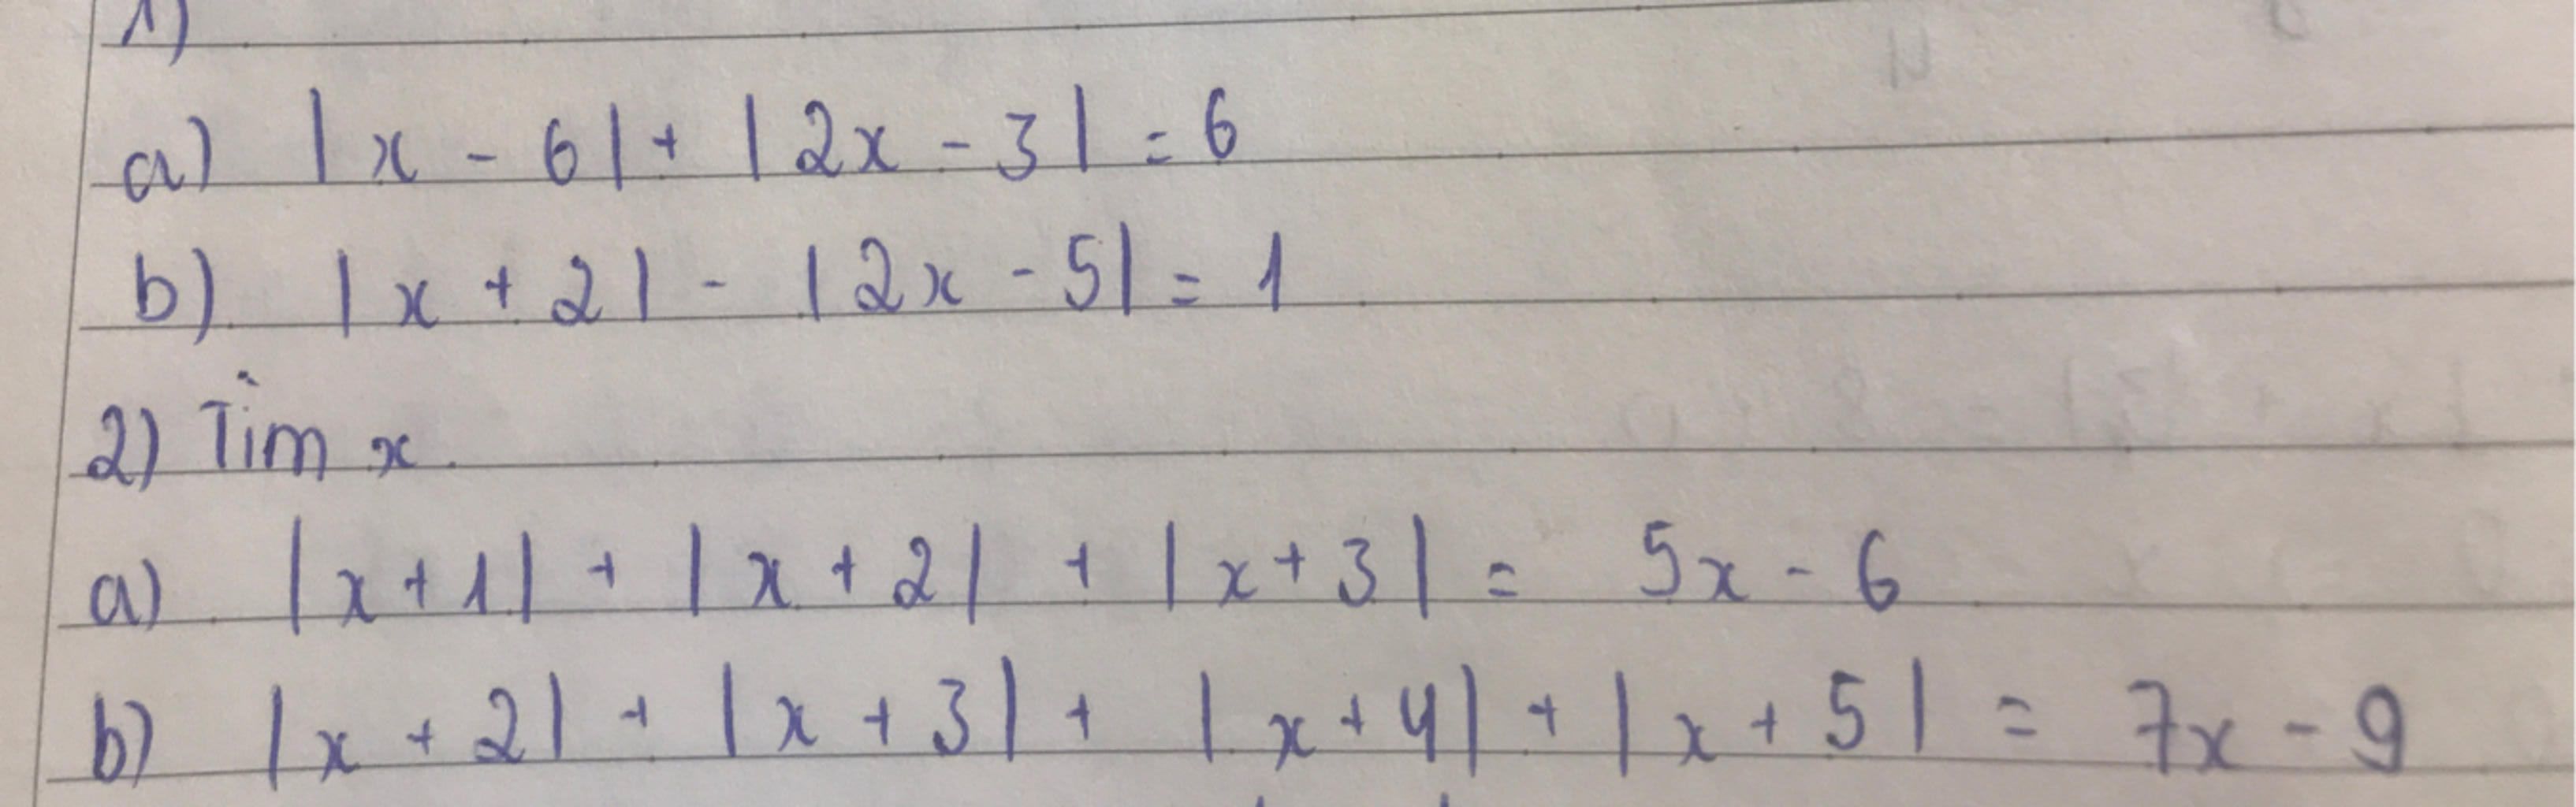 1)
a) |x - 6| + |2x - 3| = 6
b) |x + 2| - |2x - 5| = 1
2) Tìm x
a) |x + 1| + |x + 2| + |x + 3| = 5x - 6
b) |x + 2| + |x + 3| + |x + 4| + |x + 5| = 7x - 9